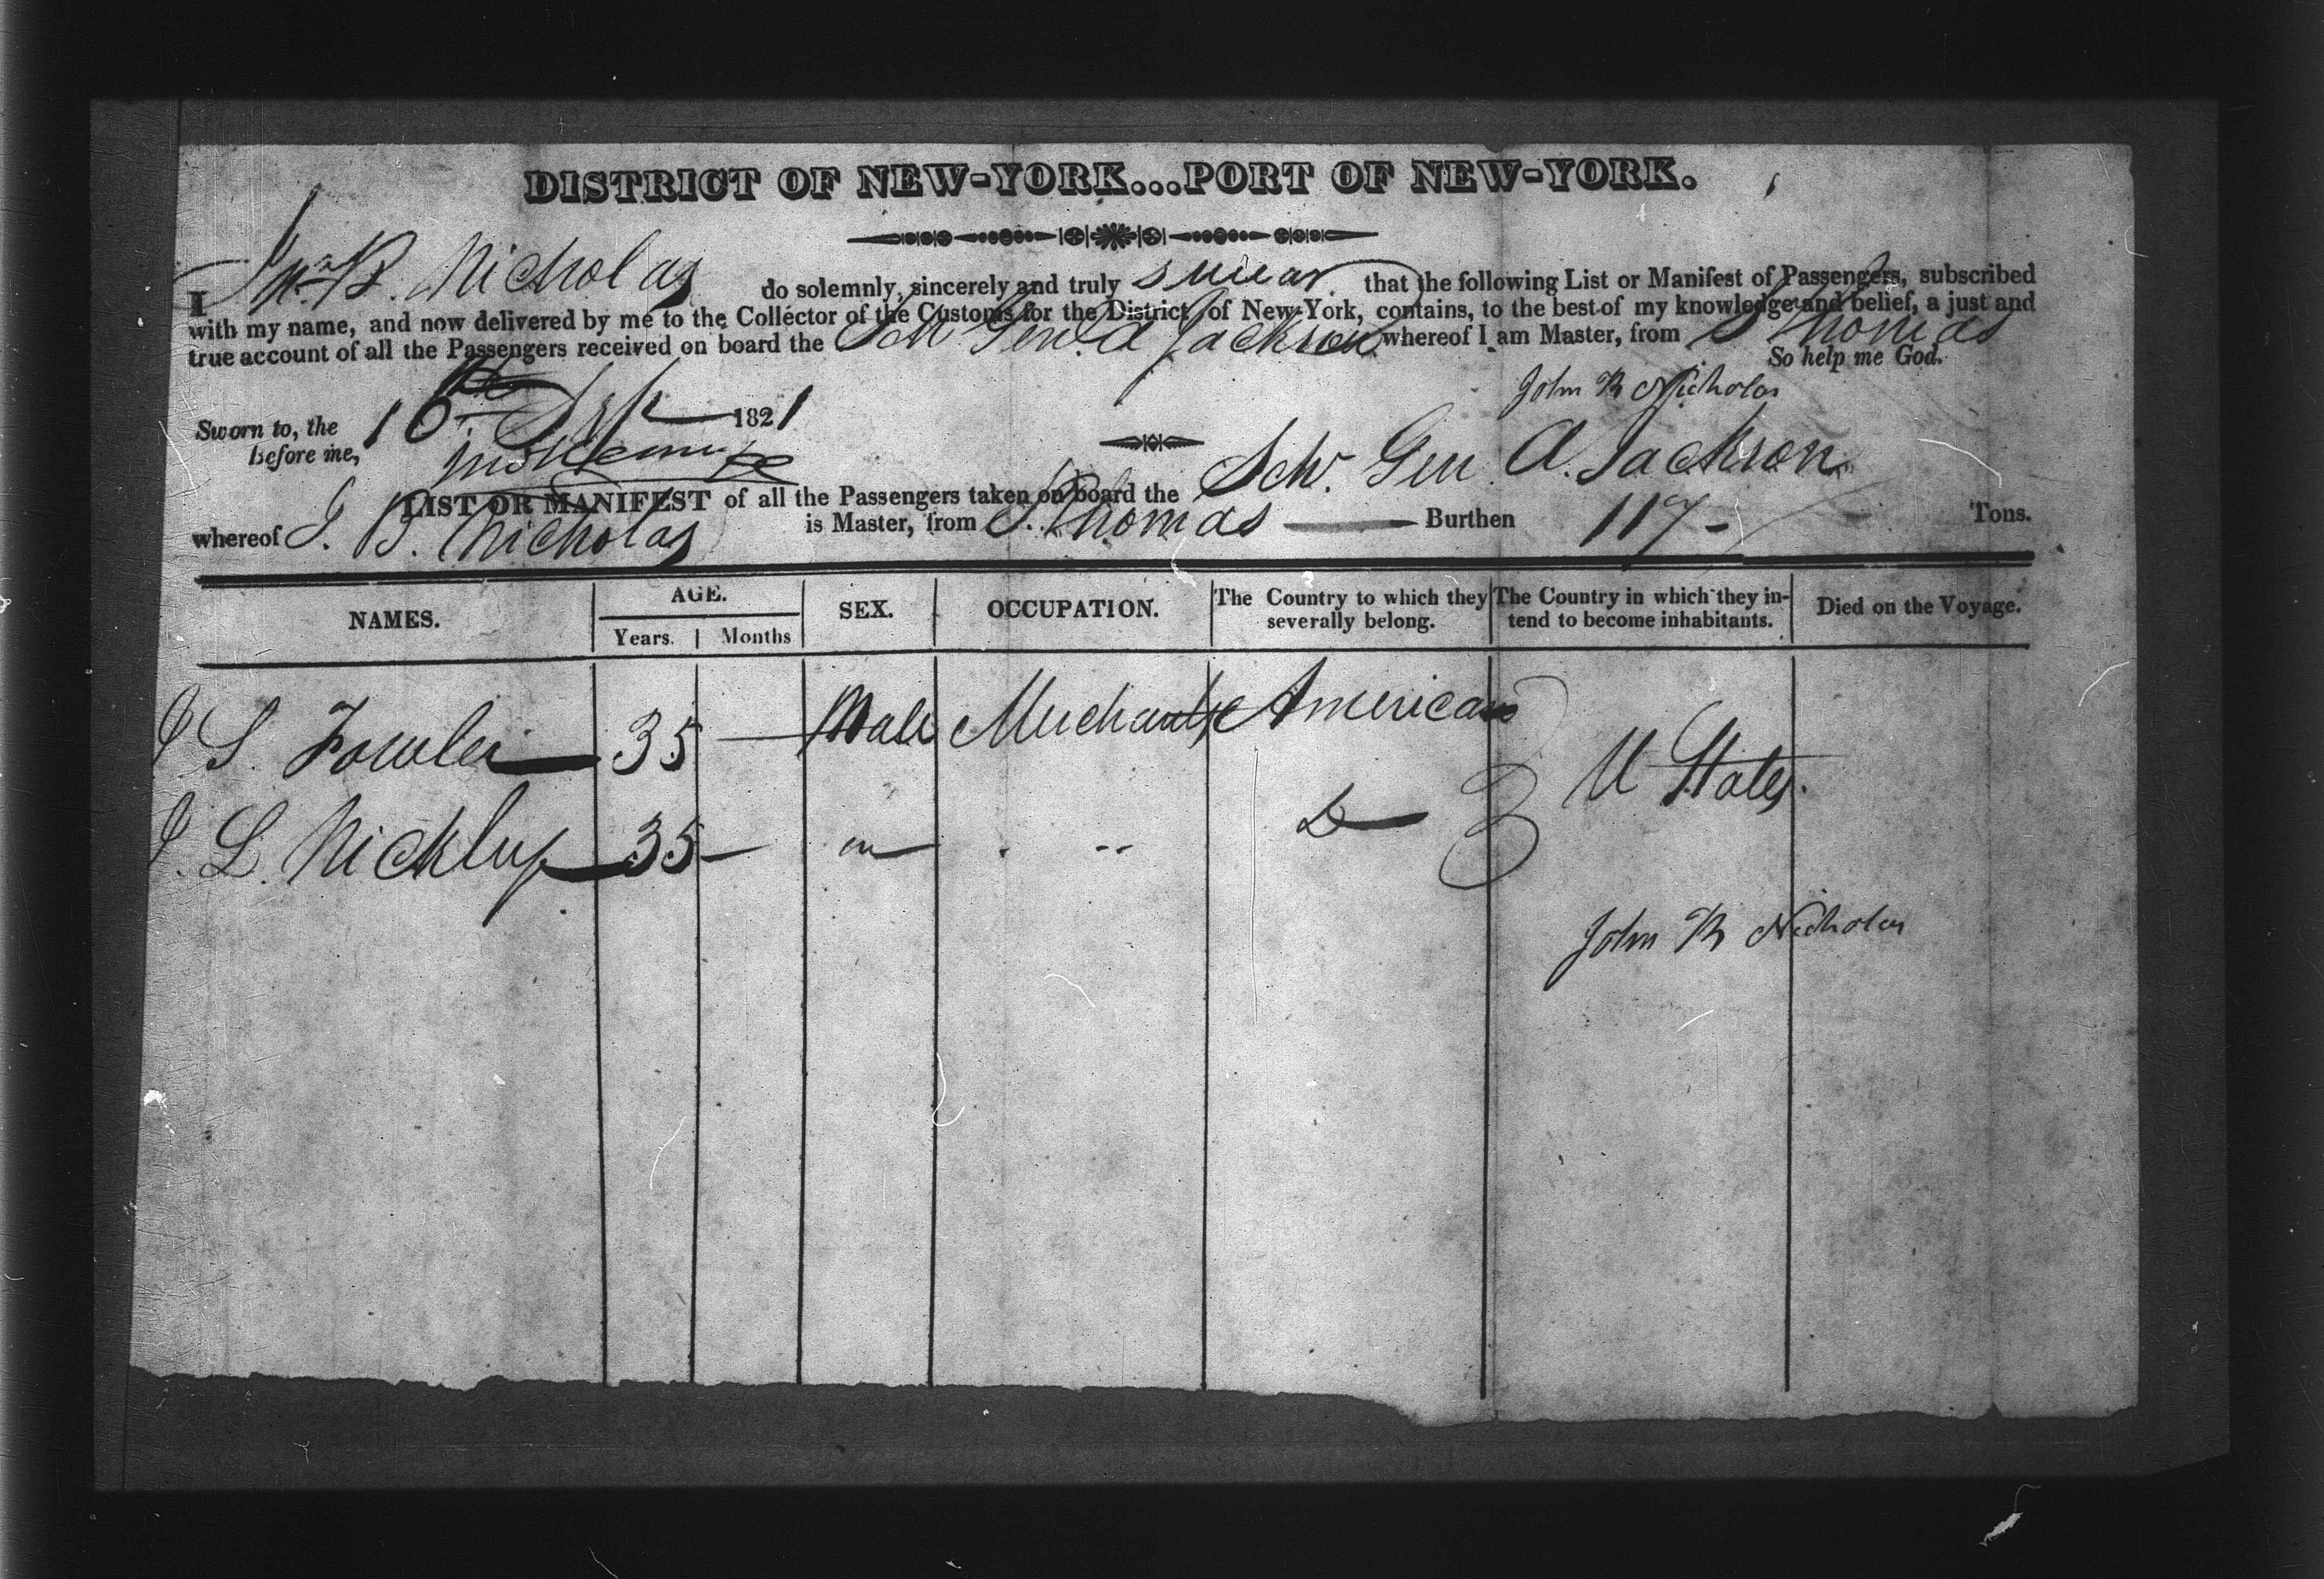 DISTRICT OF NEW-YORK...PORT OF NEW-YORK.
I Jno. B. Nicholas do solemnly, sincerely and truly swear that the following List or Manifest of Passengers, subscribed
with my name, and now delivered by me to the Collector of the Customs for the District of New-York, contains, to the best of my knowledge and belief, a just and
true account of all the Passengers received on board the Sch Genl. A Jackson whereof I am Master, from St Thomas
So help me God.
John B Nicholas
Sworn to, the 10th Sep 1821
Before me,
LIST OR MANIFEST of all the Passengers taken on board the Schr. Gen A. Jackson
whereof J. B. Nicholas is Master, from St. Thomas Burthen 117 Tons.
NAMES. AGE. SEX. OCCUPATION. The Country to which they severally belong. The Country in which they intend to become inhabitants. Died on the Voyage.
Years. Months
J S. Fowler 35 — Male Merchants American
U States.
J. L. 35 — m — . -- D —
John B Nicholas